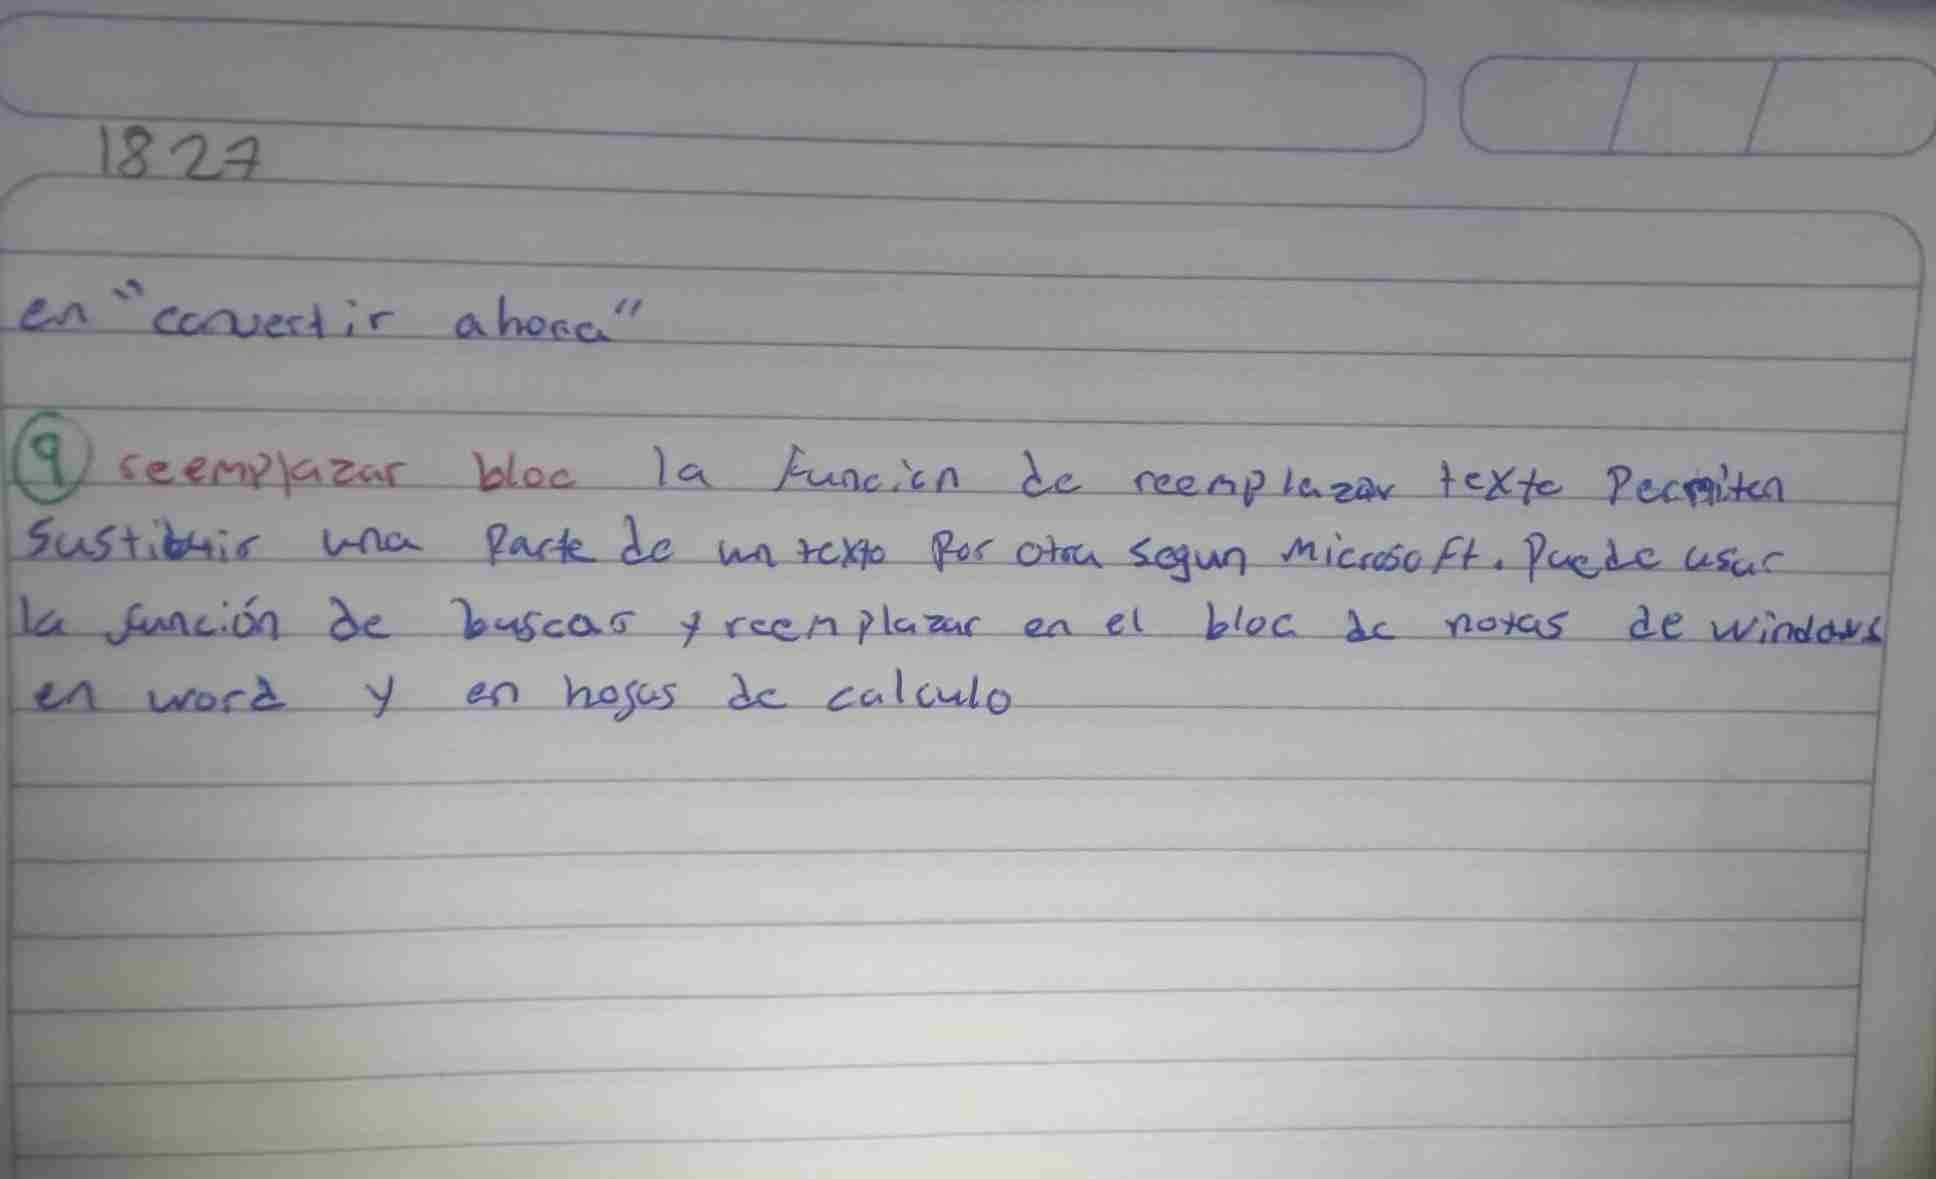 1827
en "convertir ahora"
9 reemplazar bloc la funcion de reemplazar texto Permiten
sustituir una Parte de un texto Por otra segun Microsoft. Puede usar
la función de buscar y reemplazar en el bloc de notas de windows
en word y en hojas de calculo